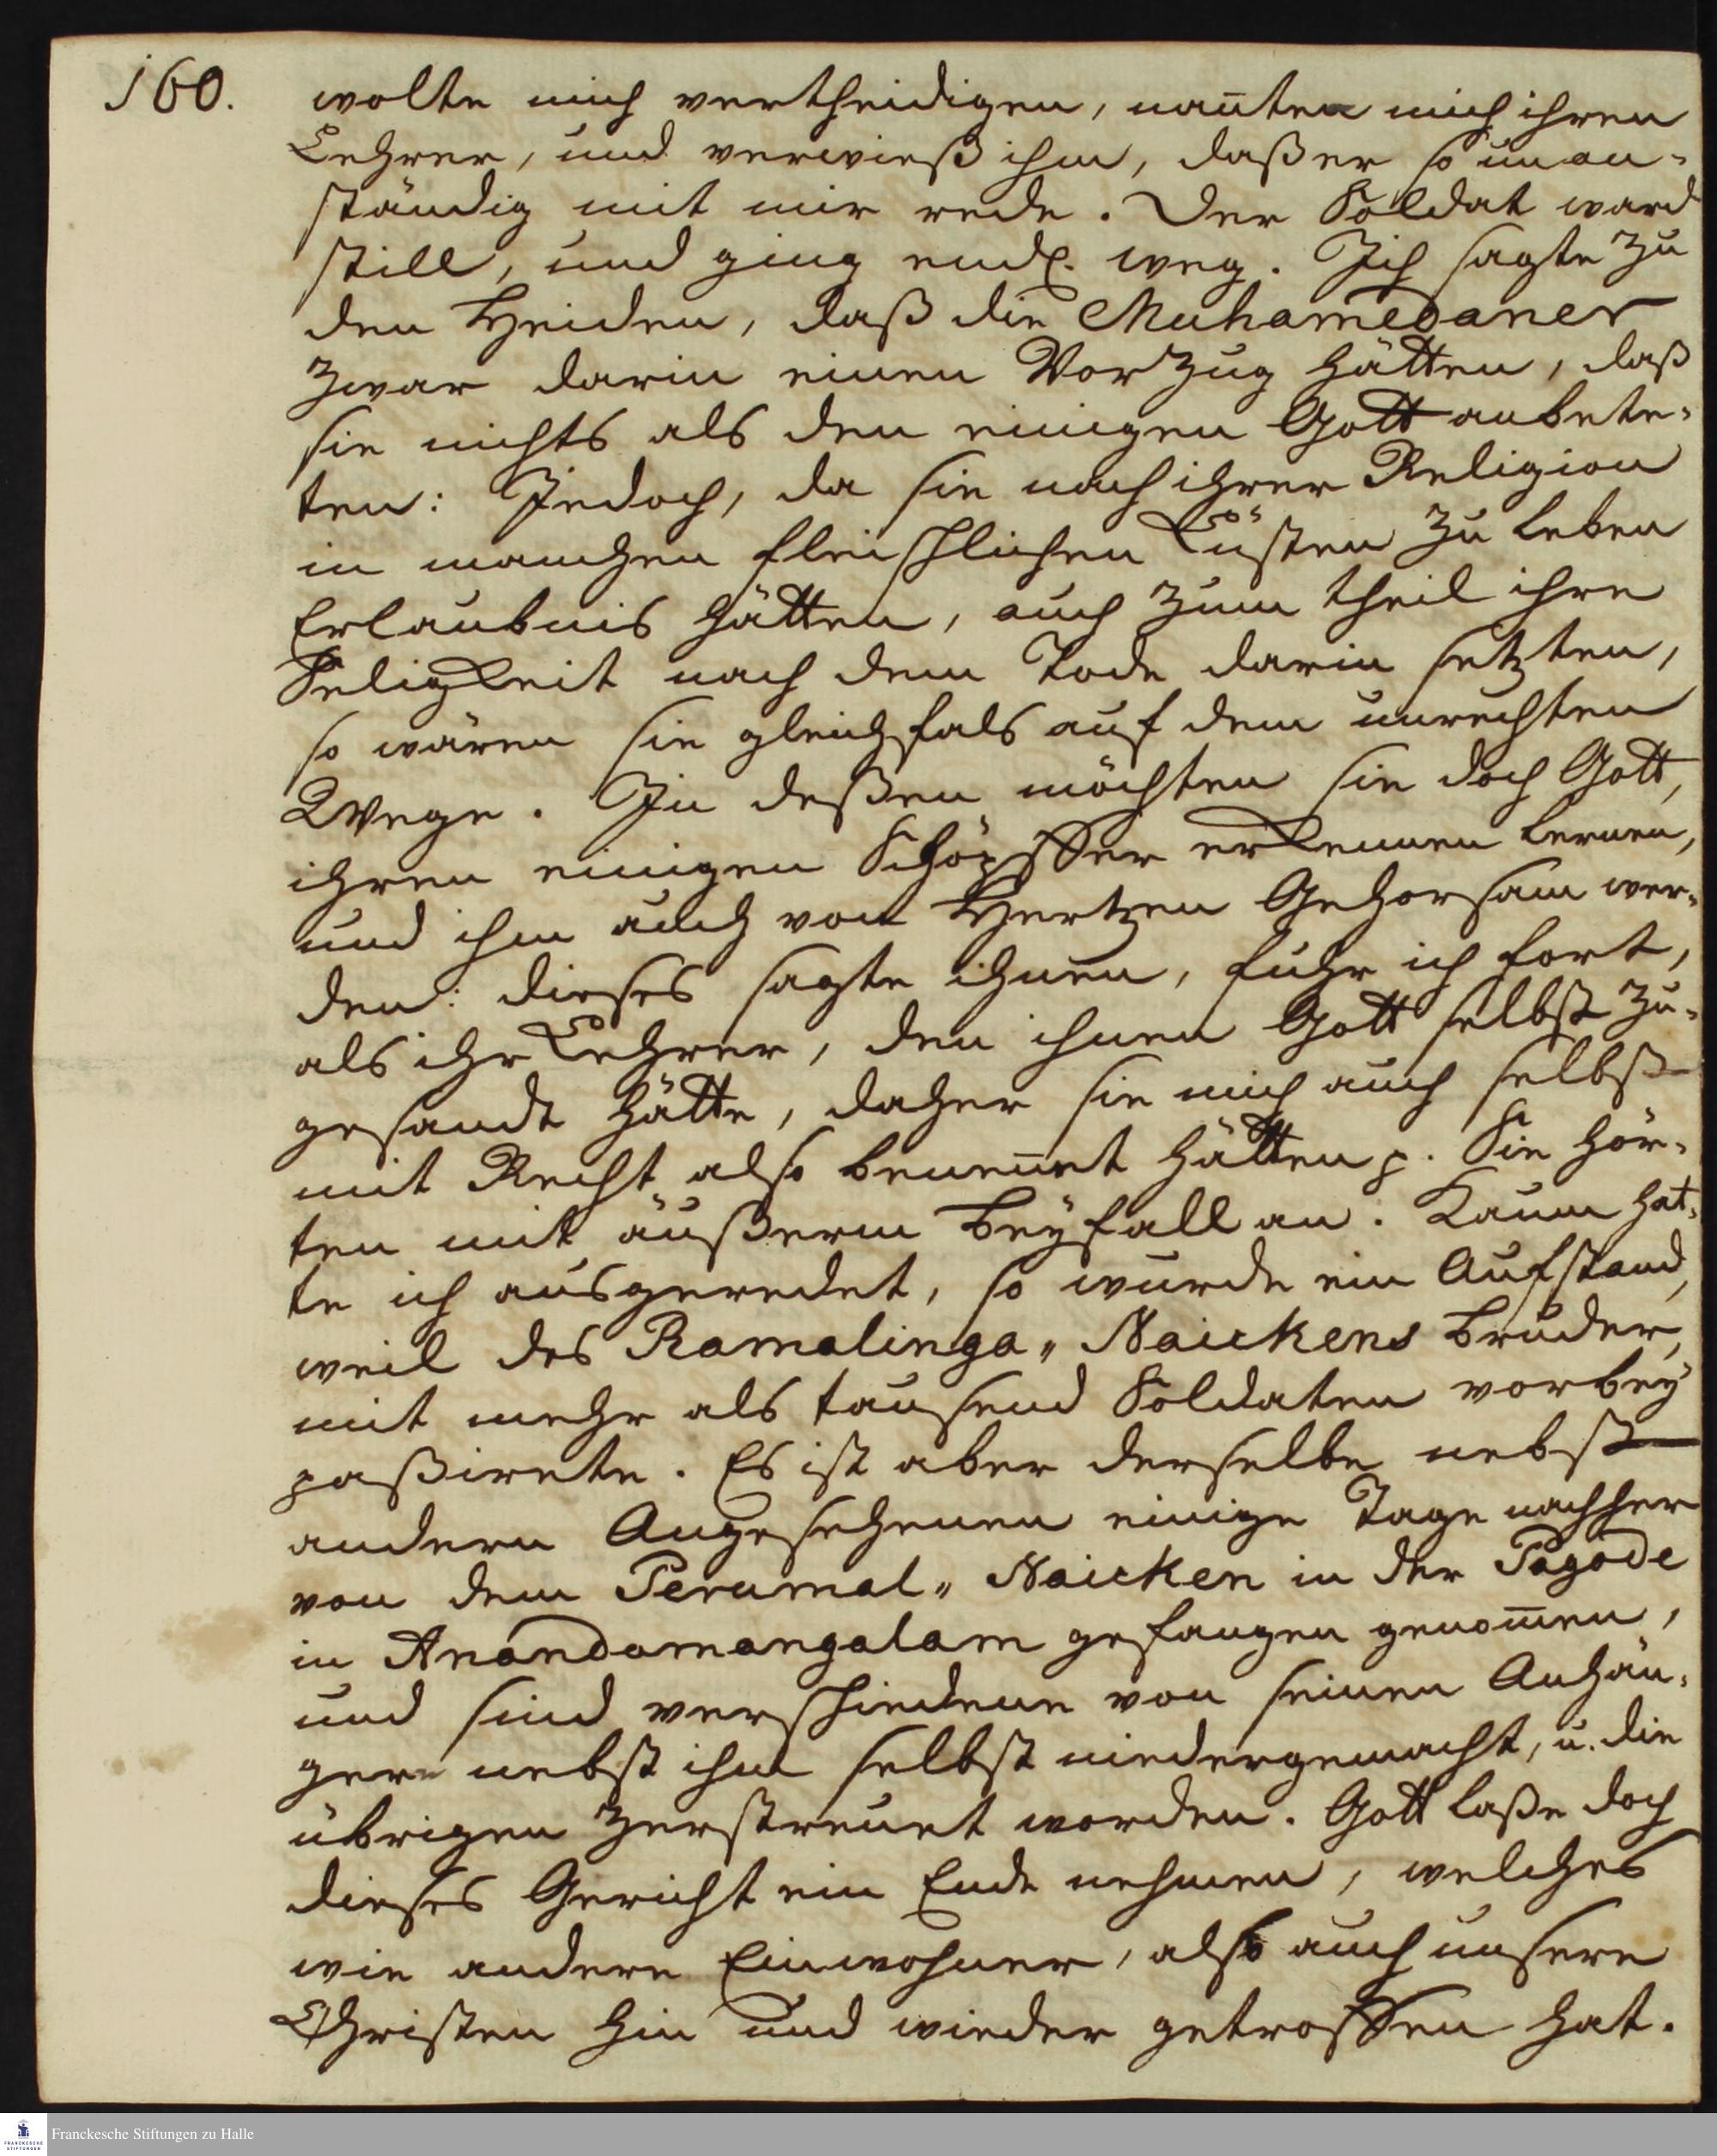 160.
wolte mich vertheidigen, nan̄te mich ihren
Lehrer, und verwieß ihm, daß er so unan-
ständig mit mir rede. Der Soldat ward
still, und ging endl. weg. Ich sagte zu
den Heiden, daß die Muhamedaner
zwar darin einen Vorzug hätten, daß
sie nichts als den einigen Gott anbete-
ten: Jedoch, da sie nach ihrer Religion
in manchen fleischlichen Lüsten zu leben
Erlaubnis hätten, auch zum theil ihre
Seligkeit nach dem Tode darin setzten,
so wären sie gleichfals auf dem unrechten
Wege. In deßen möchten sie doch Gott,
ihren einigen Schöpffer erkennen lernen,
und ihm auch von Hertzen Gehorsam wer-
den: dieses sagte ihnen, fuhr ich fort,
als ihr Lehrer, den ihnen Gott selbst zu-
gesandt hätte, daher sie mich auch selbst
mit Recht also benen̄et hätten p. Sie hör-
ten mit äußerm Beyfall an. Kaum hat-
te ich ausgeredet, so wurde ein Aufstand,
weil des Ramalinga„ Naickens Bruder,
mit mehr als tausend Soldaten vorbey
paßirete. Es ist aber derselbe nebst
andern Angesehenen einige Tage nachher
von dem Perumal„ Naicken in der Pagode
in Anandamangalam gefangen genom̄en,
und sind verschiedene von seinen Anhän-
gern nebst ihm selbst niedergemacht, u. die
übrigen zerstreuet worden. Gott laße doch
dieses Gericht ein Ende nehmen, welches
wie andere Einwohner, also auch unsere
Christen hin und wieder getroffen hat.
FRANCKESCHE
STIFTUNGEN
Franckesche Stiftungen zu Halle